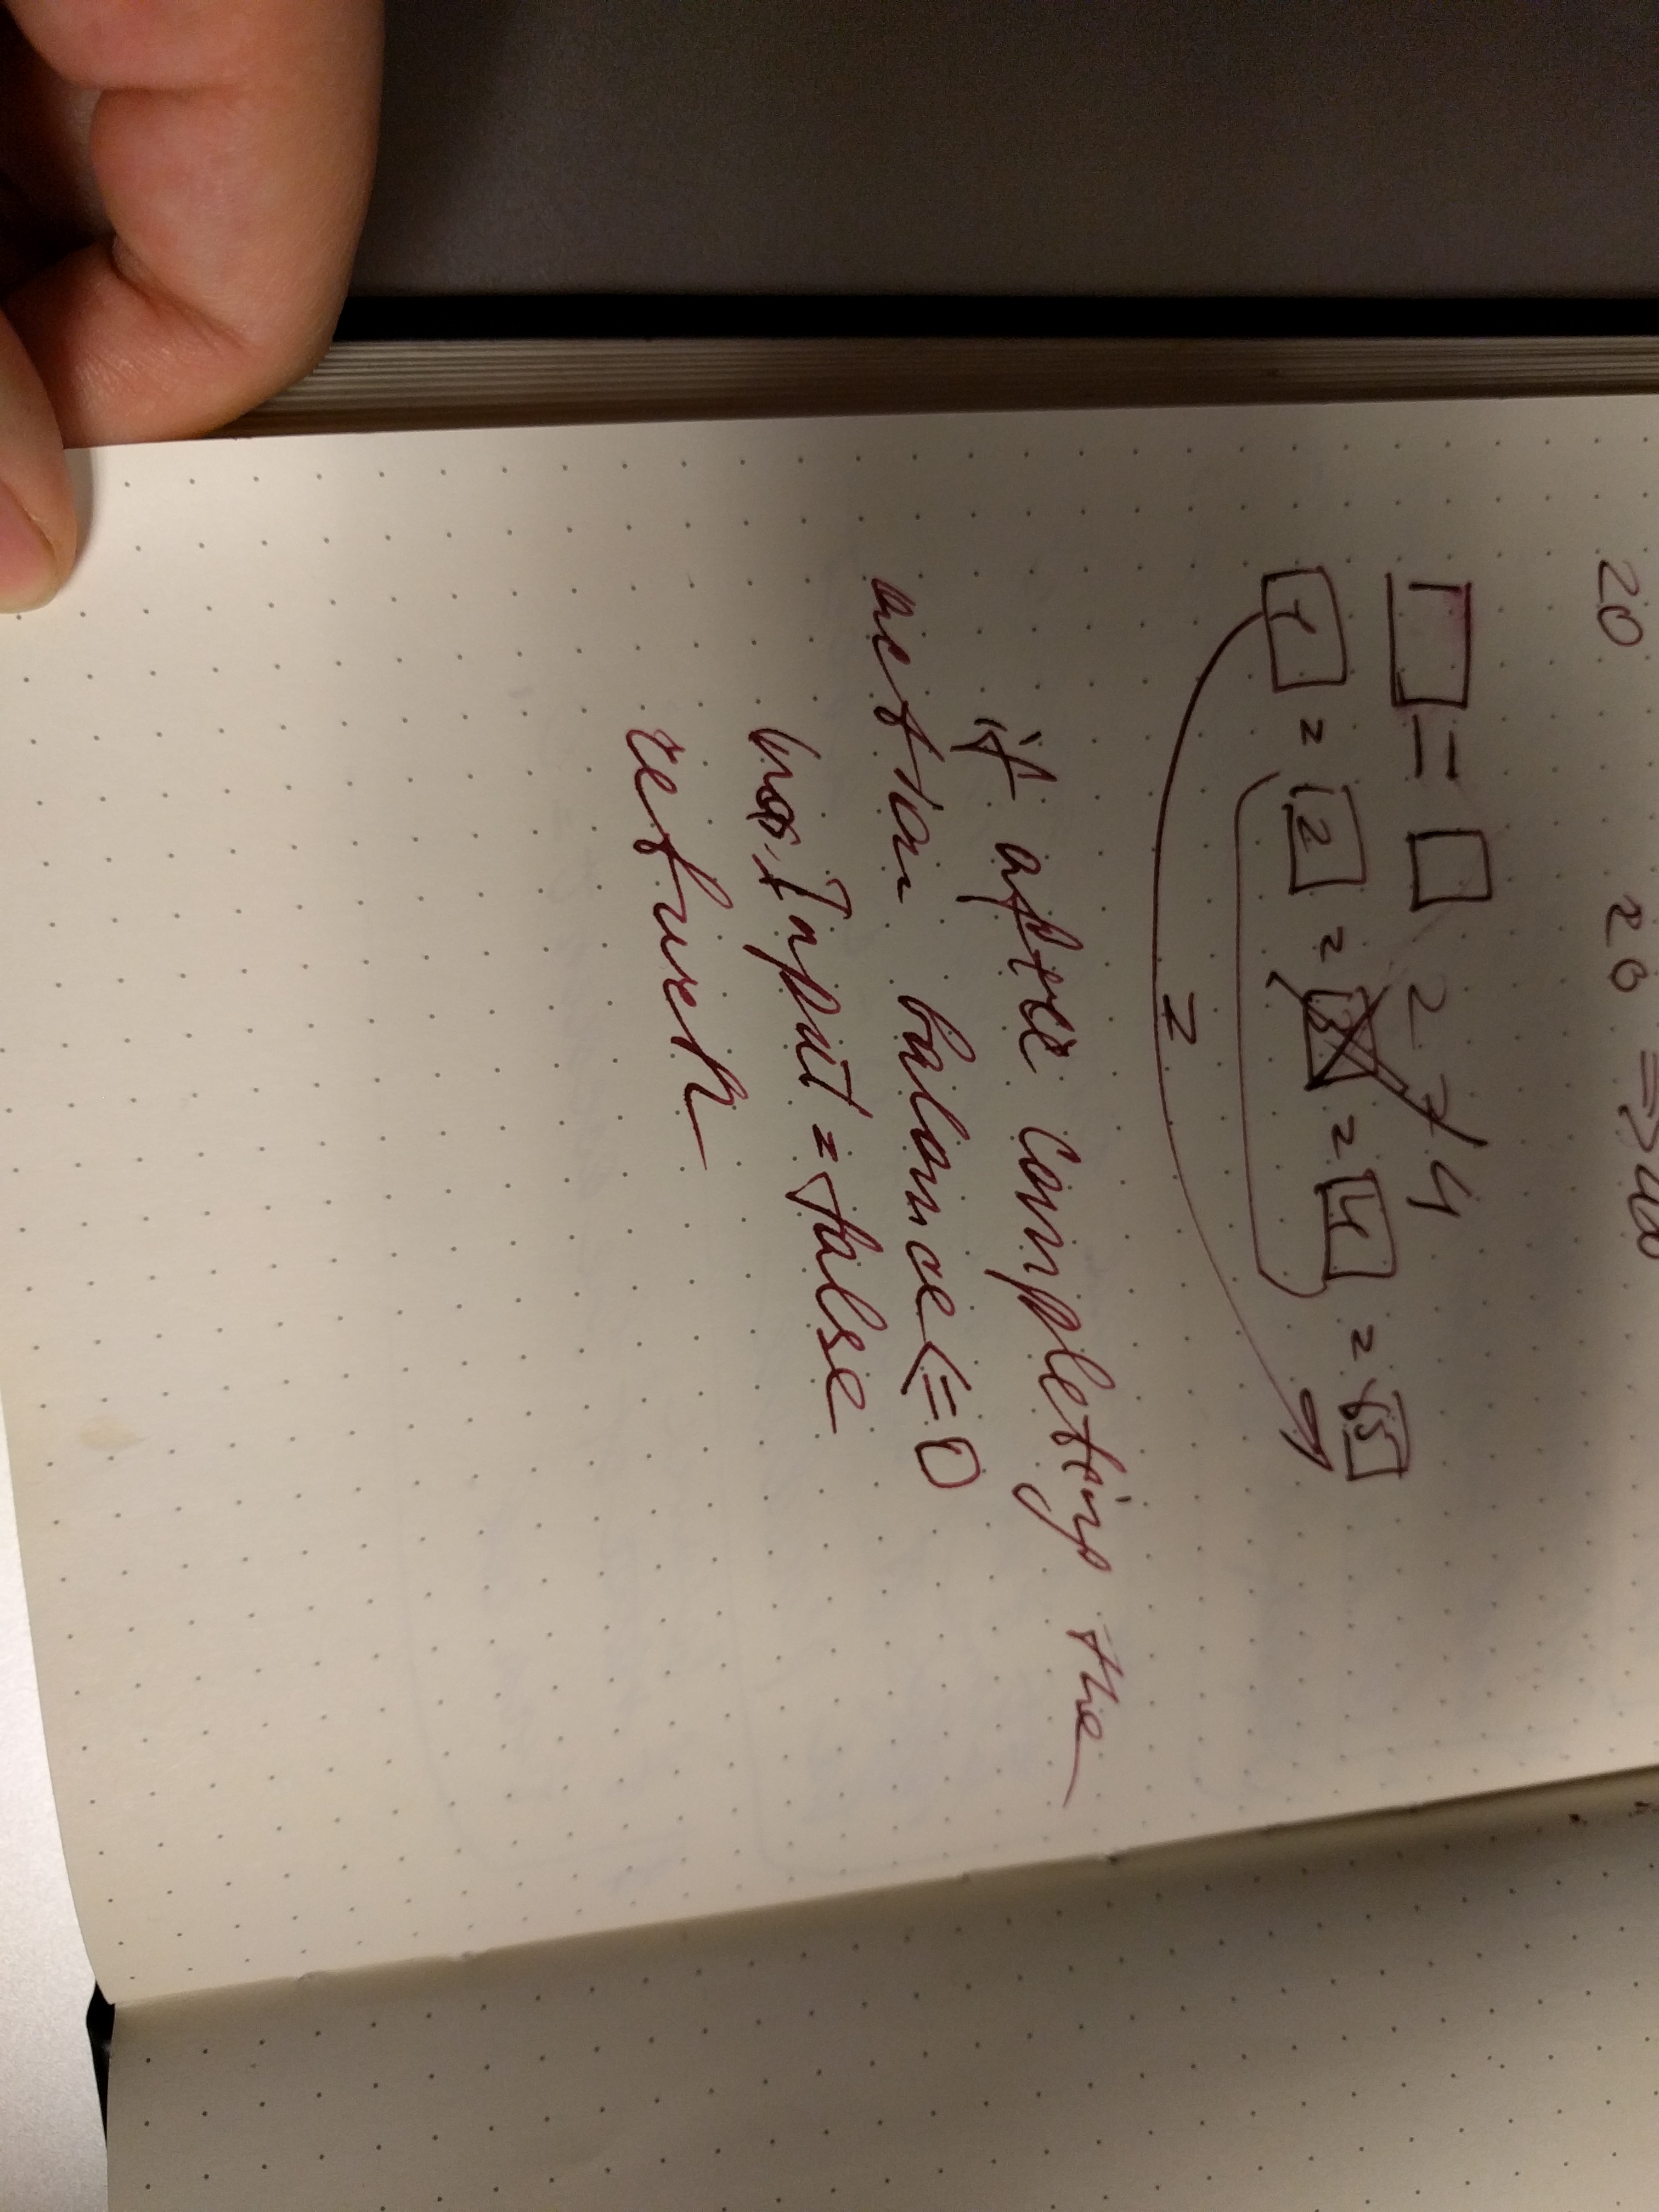 20 20 =>
= 2 7 4
1 2 2 2 2 4 2 5
if after completing the
action balance <= 0
hasInput = false
return